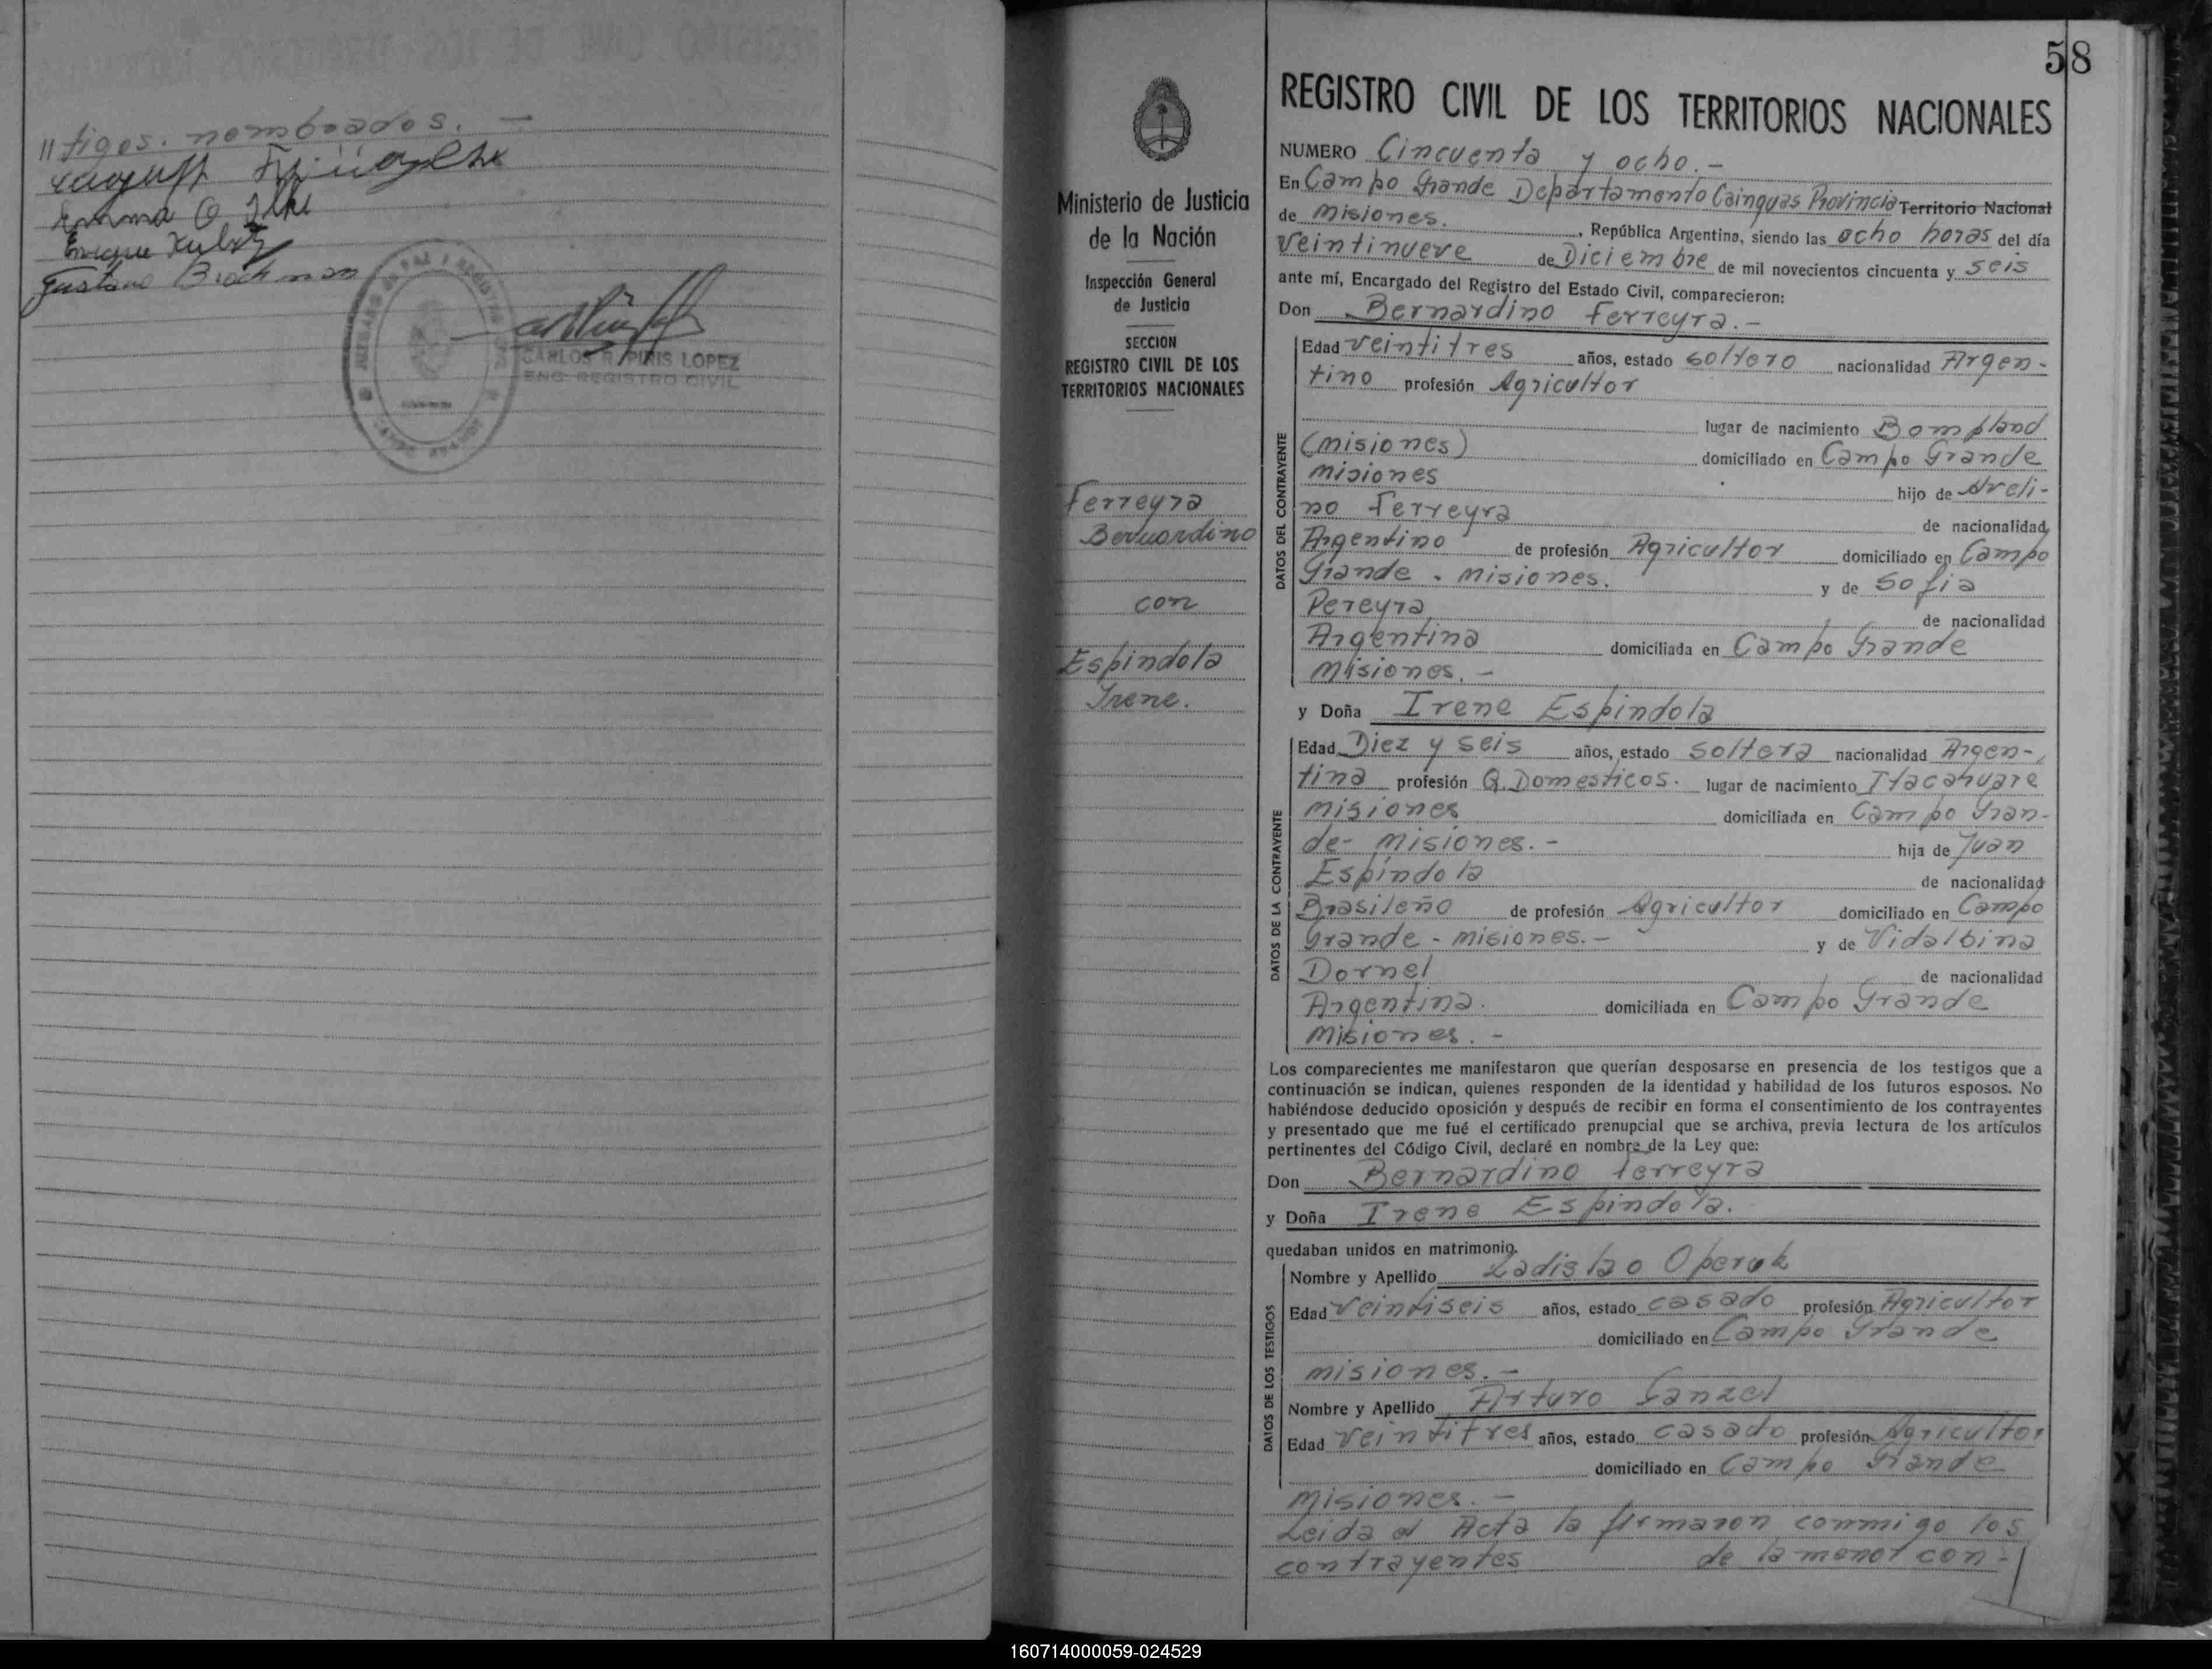 //tigos. nombrados. —
August
Emma O. Ilke
Enrique Kubitz
Gustavo Brockman
JUZGADO DE PAZ Y REGISTRO CIVIL
CAMPO GRANDE
CARLOS R. PIRIS LOPEZ
ENC. REGISTRO CIVIL
Ministerio de Justicia
de la Nación
Inspección General
de Justicia
SECCION
REGISTRO CIVIL DE LOS
TERRITORIOS NACIONALES
Ferreyra
Bernardino
con
Espindola
Irene.
58
REGISTRO CIVIL DE LOS TERRITORIOS NACIONALES
NUMERO Cincuenta y ocho.-
En Campo Grande Departamento Cainguas Provincia Territorio Nacional
de Misiones. , República Argentina, siendo las ocho horas del día
veintinueve de Diciembre de mil novecientos cincuenta y seis
ante mí, Encargado del Registro del Estado Civil, comparecieron:
Don Bernardino Ferreyra.-
DATOS DEL CONTRAYENTE
Edad veintitres años, estado soltero nacionalidad Argen-
tino profesión Agricultor
lugar de nacimiento Bompland
(Misiones) domiciliado en Campo Grande
Misiones hijo de Aveli-
no Ferreyra de nacionalidad
Argentino de profesión Agricultor domiciliado en Campo
Grande - Misiones. y de Sofia
Pereyra de nacionalidad
Argentina domiciliada en Campo Grande
Misiones. -
y Doña Irene Espindola
DATOS DE LA CONTRAYENTE
Edad Diez y seis años, estado soltera nacionalidad Argen-
tina profesión Q. Domesticos. lugar de nacimiento Itacaruare
Misiones domiciliada en Campo Gran-
de- Misiones. - hija de Juan
Espíndola de nacionalidad
Brasileño de profesión Agricultor domiciliado en Campo
Grande - Misiones. - y de Vidalbina
Dornel de nacionalidad
Argentina. domiciliada en Campo Grande
Misiones. -
Los comparecientes me manifestaron que querían desposarse en presencia de los testigos que a
continuación se indican, quienes responden de la identidad y habilidad de los futuros esposos. No
habiéndose deducido oposición y después de recibir en forma el consentimiento de los contrayentes
y presentado que me fué el certificado prenupcial que se archiva, previa lectura de los artículos
pertinentes del Código Civil, declaré en nombre de la Ley que:
Don Bernardino Ferreyra
y Doña Irene Espindola.
quedaban unidos en matrimonio.
DATOS DE LOS TESTIGOS
Nombre y Apellido Ladislao Operuk
Edad Veintiseis años, estado casado profesión Agricultor
domiciliado en Campo Grande
Misiones. -
Nombre y Apellido Arturo Ganzel
Edad veintitres años, estado casado profesión Agricultor
domiciliado en Campo Grande
Misiones. -
Leida el Acta la firmaron conmigo los
contrayentes de la menor con-//
160714000059-024529